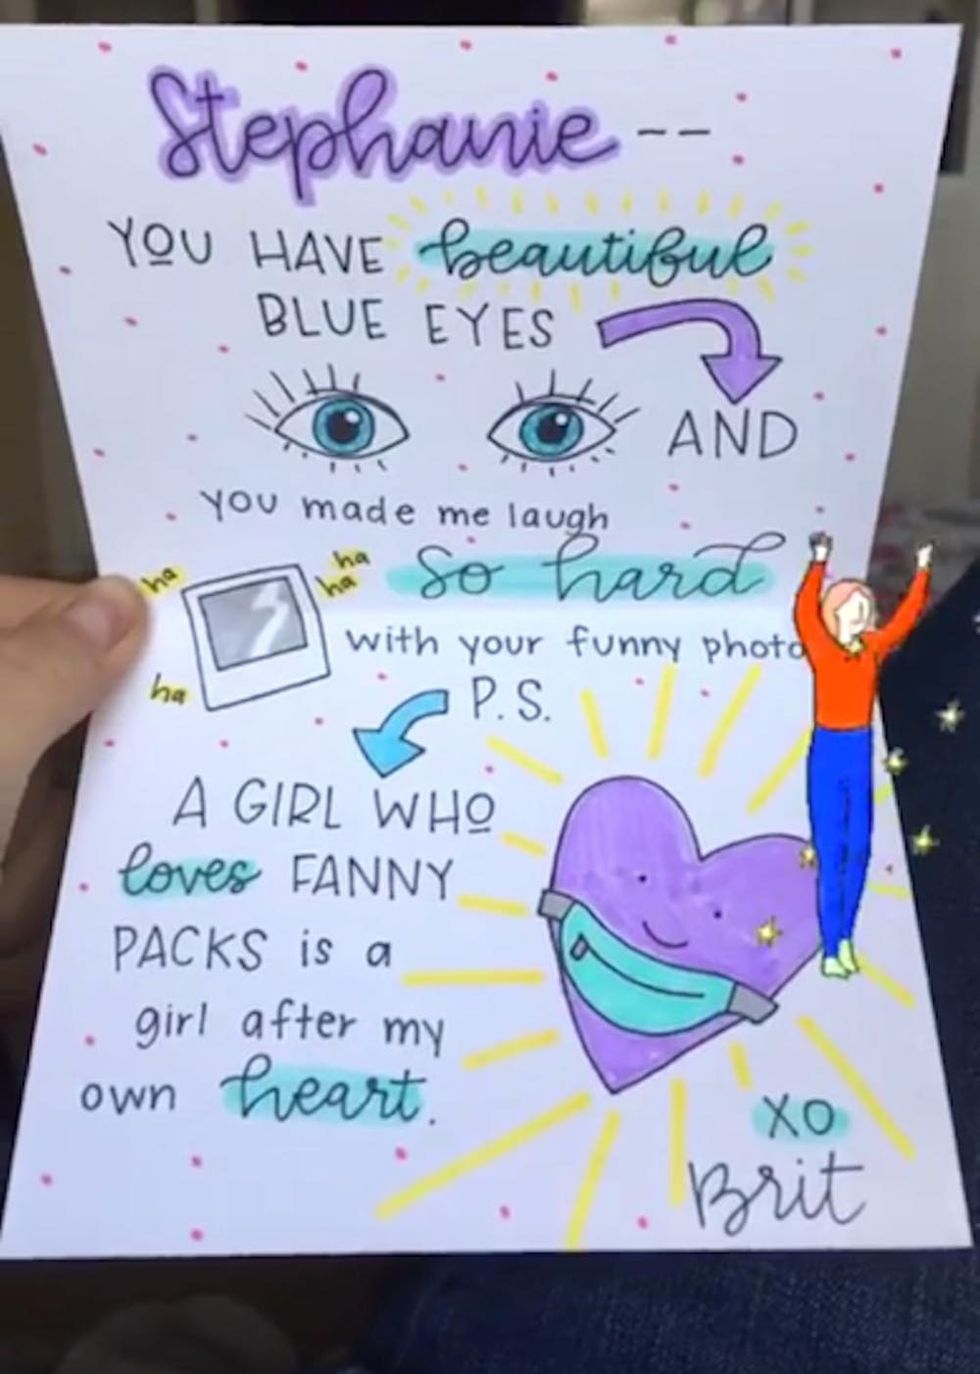 Stephanie --
YOU HAVE beautiful
BLUE EYES
AND
you made me laugh
ha
ha
ha
so hard
with your funny photo
ha
P.S.
A GIRL WHO
loves FANNY
PACKS is a
girl after my
own heart.
XO
Brit